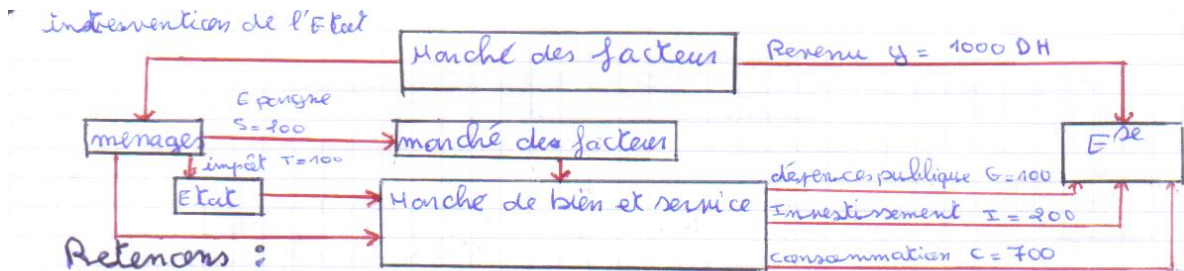 intervention de l'Etat
Marché des facteur
Revenu y = 1000 DH
Epargne
S=200
ménages
marché des facteurs
Ese
impôt T=100
Etat
Marché de bien et service
dépences publique G=100
Investissement I = 200
consommation C = 700
Retenons :